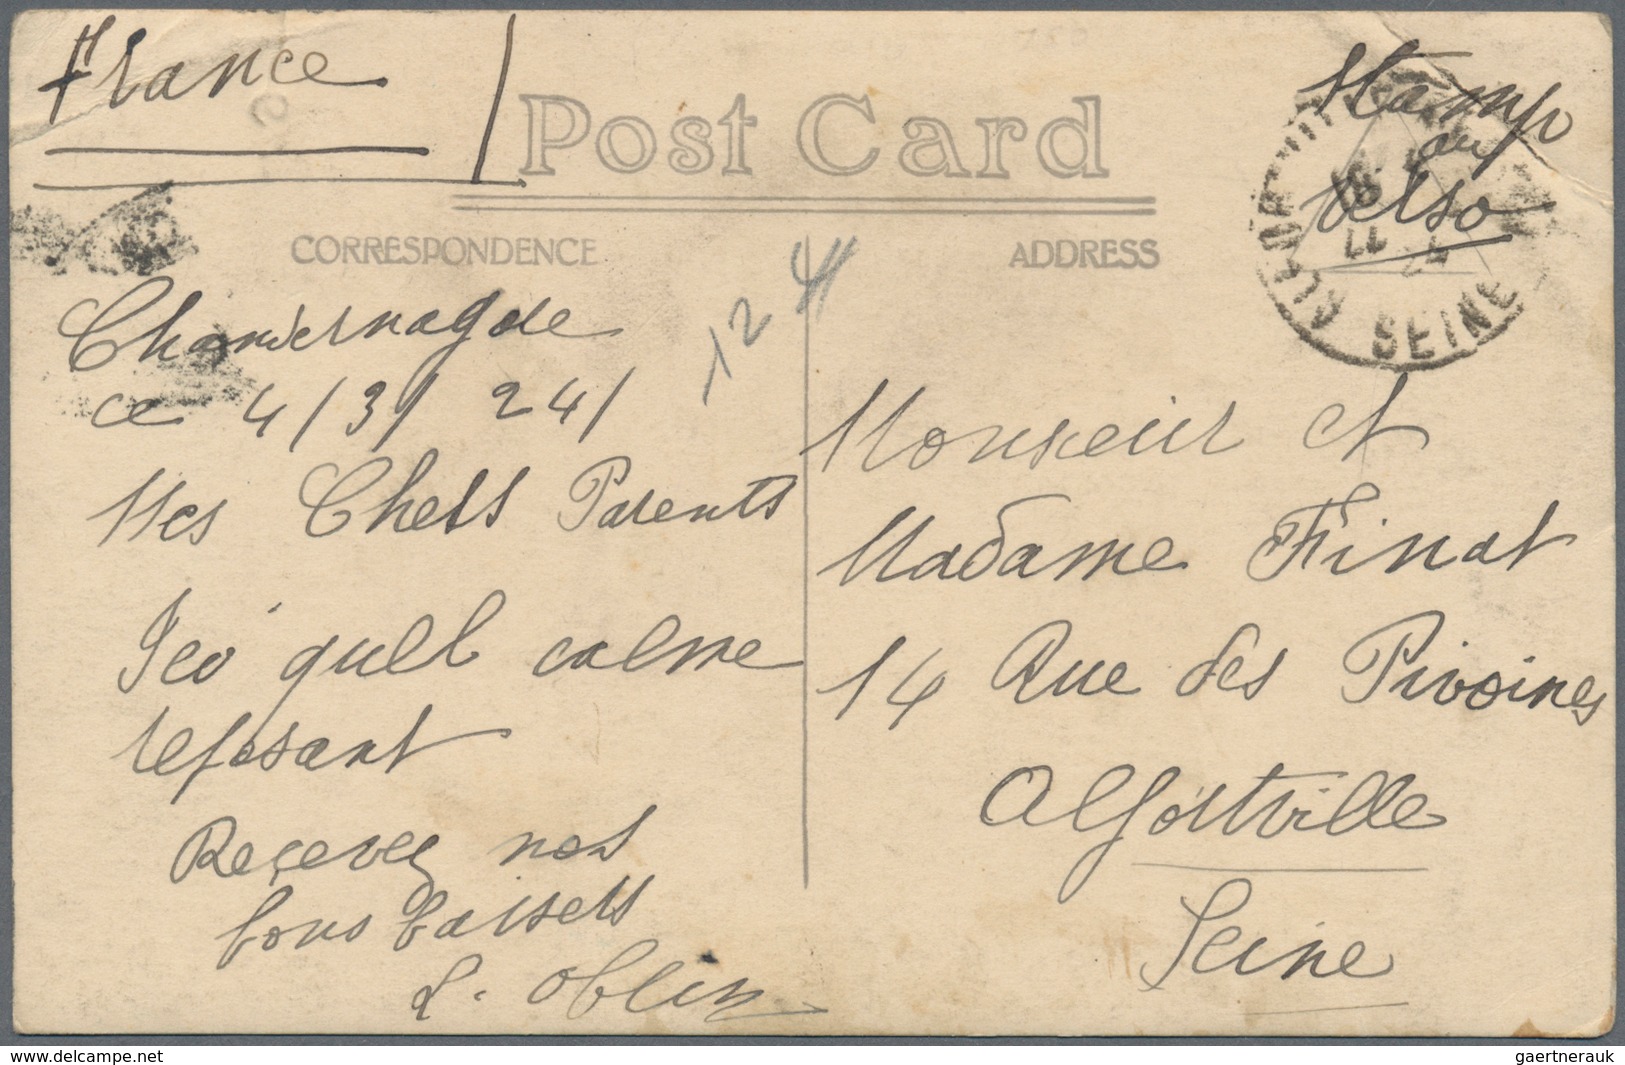 France
Post Card
Stamp
au
verso
CORRESPONDENCE
ADDRESS
12
Chandernagor
ce 4/3/24/
Mes Chers Parents
Ici quel calme
reposant
Recevez nos
bons baisers
L. Oblin
Monsieur et
Madame Finat
14 Rue des Pivoines
Alfortville
Seine
SEINE
gaertnerauk // delcampe.net
gaertnerauk